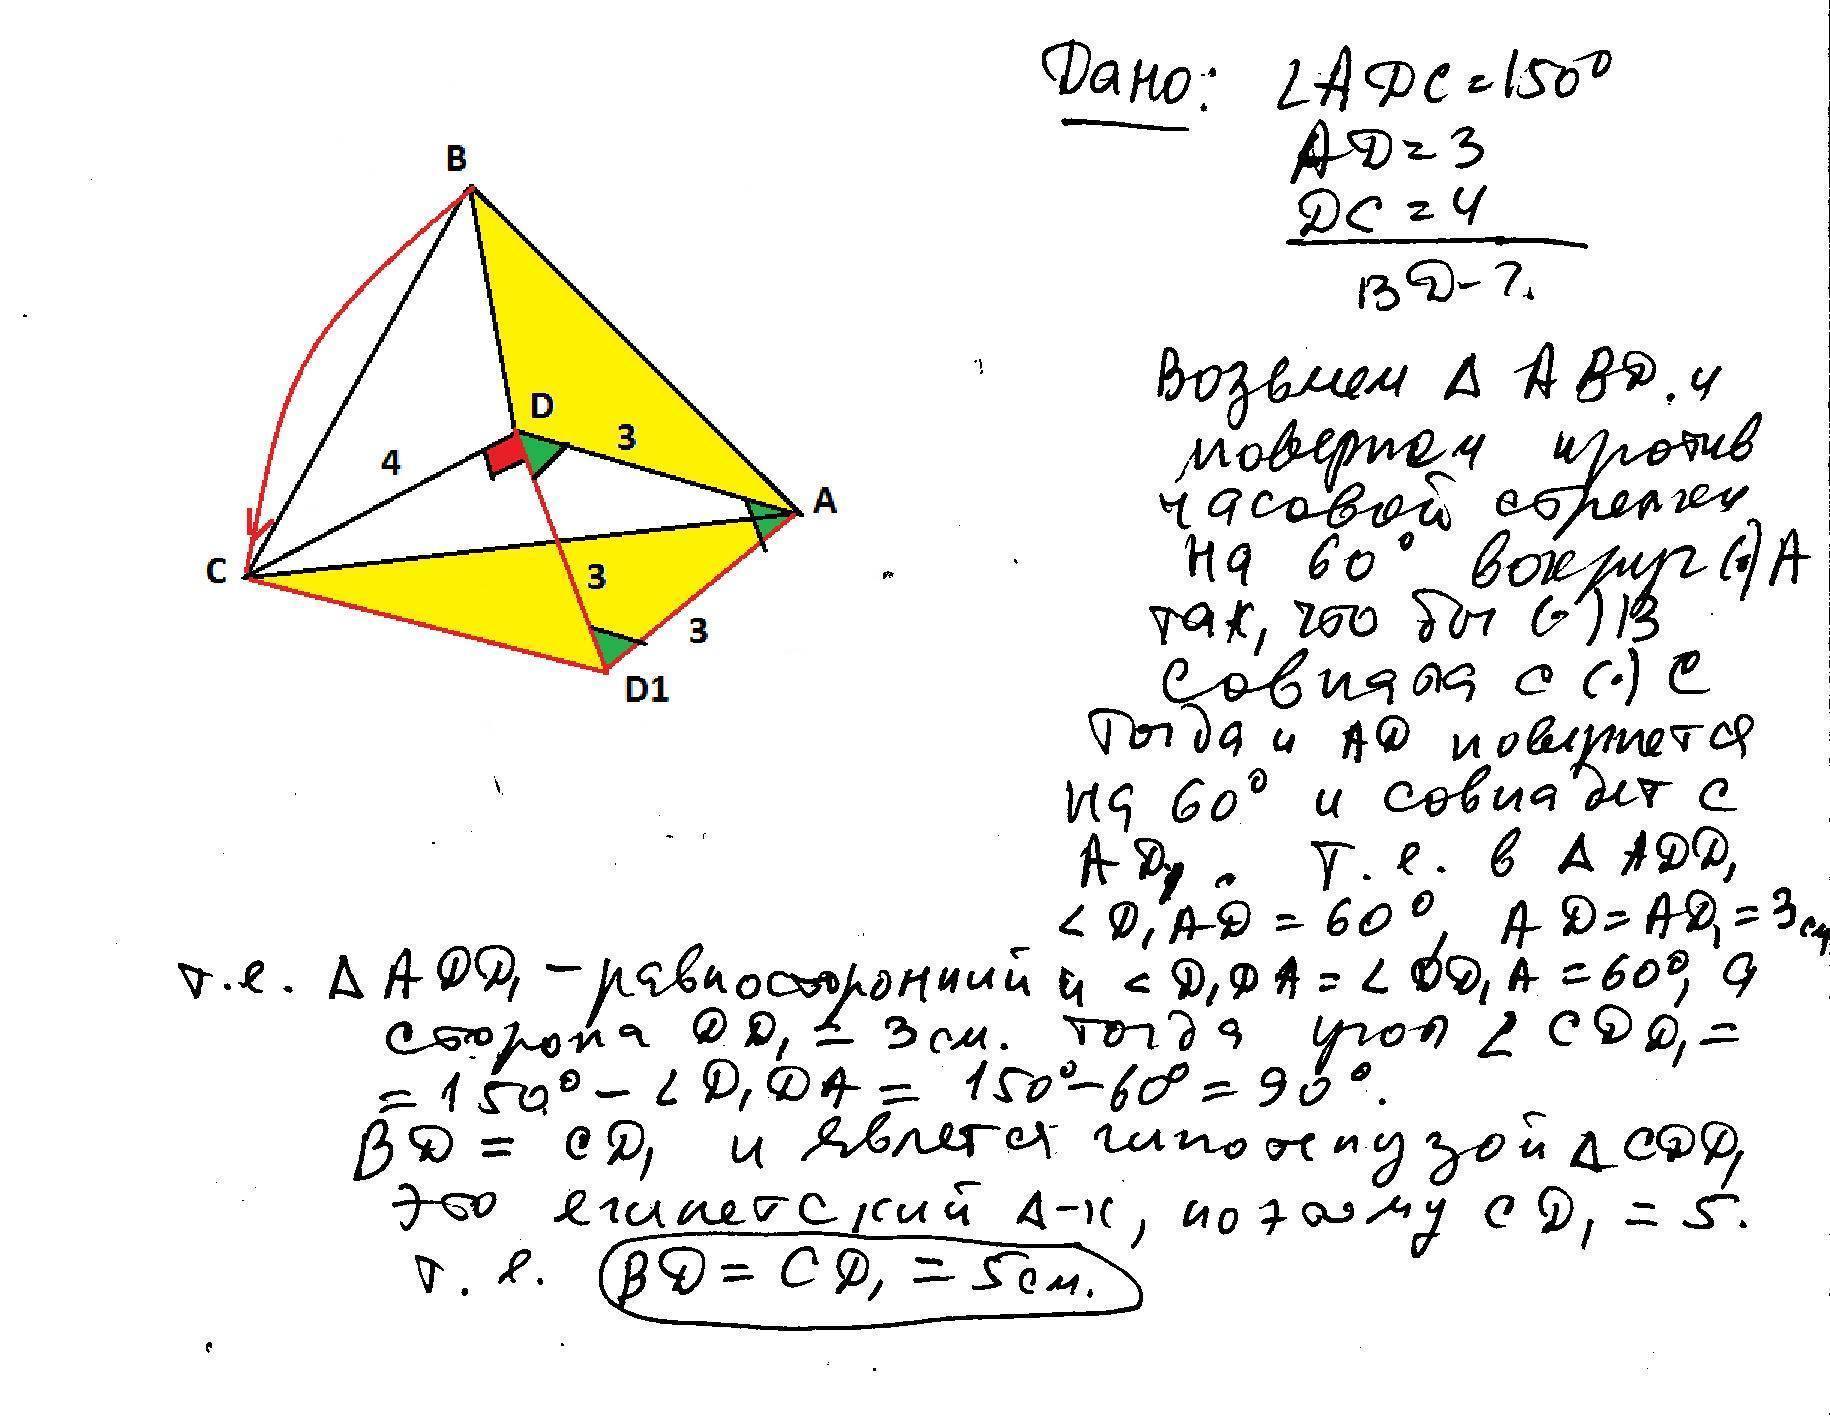 B
D
3
4
A
C
3
3
D1
Дано: ∠ADC=150°
AD=3
DC=4
BD-?.
Возьмем Δ ABD. и
повернем против
часовой стрелки
на 60° вокруг (·)A
так, что бы (·)B
совпала с (·)C
Тогда и AD повернется
на 60° и совпадет с
AD₁. Т.е. в Δ ADD₁
∠D₁AD=60°, AD=AD₁=3см
т.е. ΔADD₁ – равносторонний и ∠D₁DA=∠DD₁A=60°, а
сторона DD₁=3см. Тогда угол ∠CDD₁=
=150°-∠D₁DA= 150°-60°=90°.
BD = CD₁ и явлется гипотенузой ΔCDD₁
это египетский Δ-к, поэтому CD₁=5.
т.е. BD=CD₁=5см.